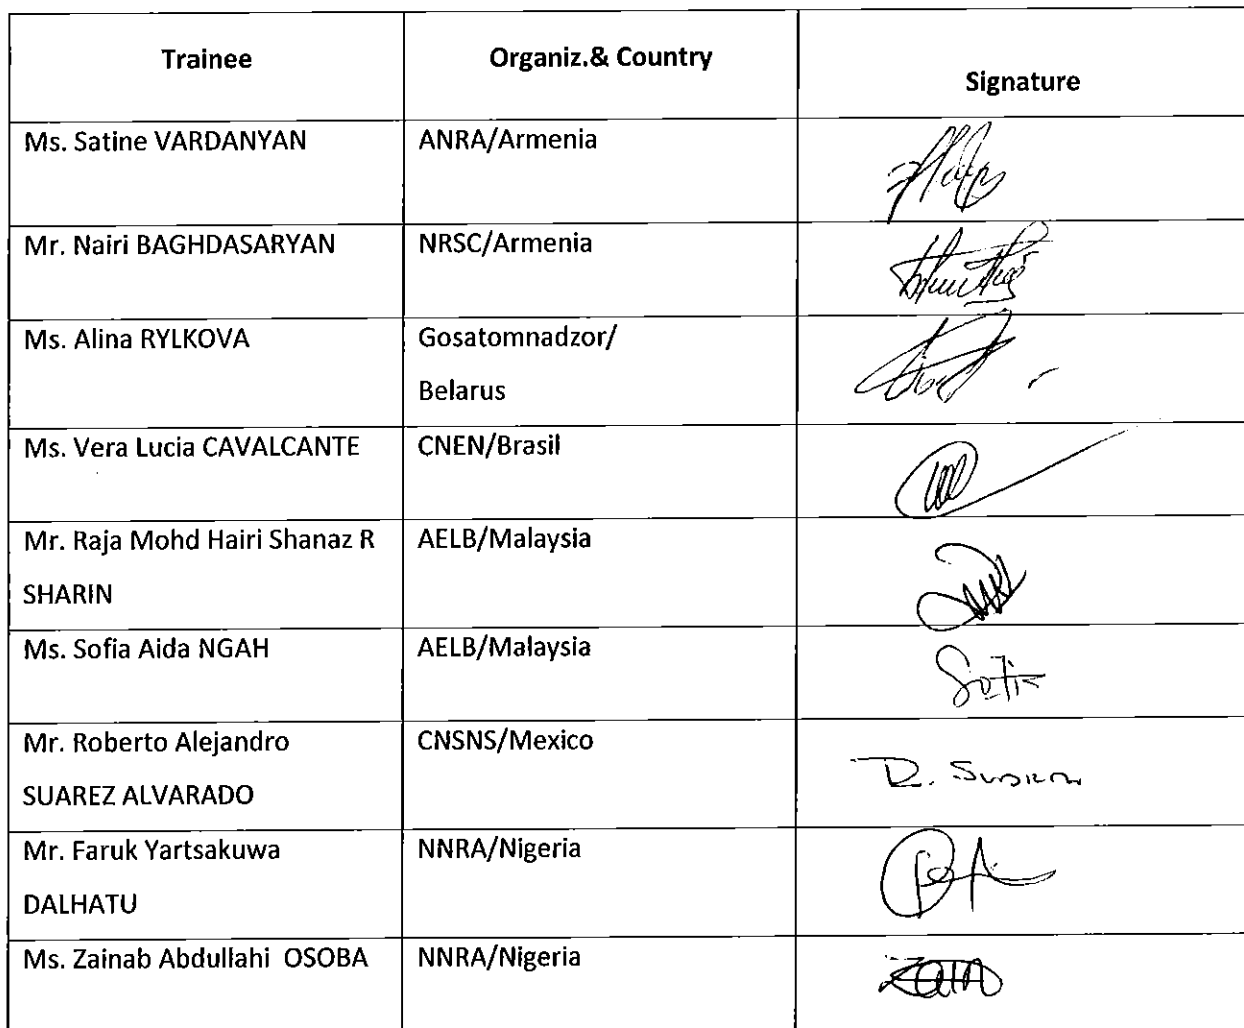 Trainee Organiz.& Country Signature
Ms. Satine VARDANYAN ANRA/Armenia
Mr. Nairi BAGHDASARYAN NRSC/Armenia
Ms. Alina RYLKOVA Gosatomnadzor/
Belarus
Ms. Vera Lucia CAVALCANTE CNEN/Brasil
Mr. Raja Mohd Hairi Shanaz R AELB/Malaysia
SHARIN
Ms. Sofia Aida NGAH AELB/Malaysia Sofia
Mr. Roberto Alejandro CNSNS/Mexico
SUAREZ ALVARADO R. Suarez
Mr. Faruk Yartsakuwa NNRA/Nigeria
DALHATU
Ms. Zainab Abdullahi OSOBA NNRA/Nigeria